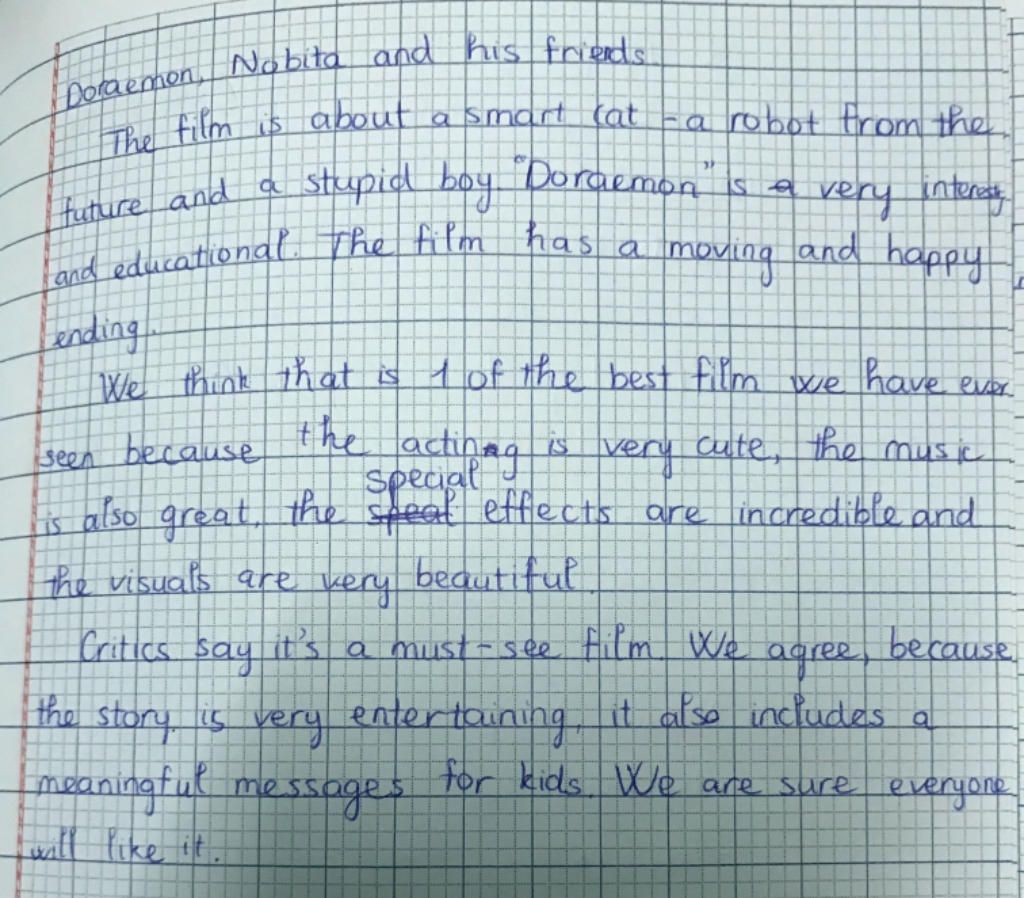 Doraemon, Nobita and his friends.
The film is about a smart cat - a robot from the
future and a stupid boy. "Doraemon" is very interesting
and educational. The film has a moving and happy
ending.
We think that is 1 of the best film we have ever
seen because the acting is very cute, the music
is also great, the special effects are incredible and
the visuals are very beautiful.
Critics say it's a must-see film. We agree, because
the story is very entertaining, it also includes a
meaningful messages for kids. We are sure everyone
will like it.